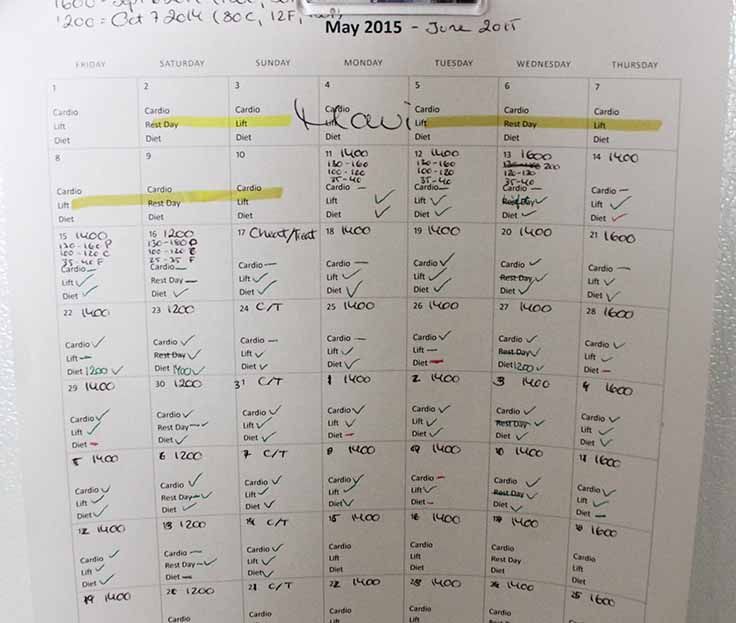 1200 = Oct 7 2014 (80C, 12F,
May 2015 - June 2015
FRIDAY SATURDAY SUNDAY MONDAY TUESDAY WEDNESDAY THURSDAY
1 2 3 4 5 6 7
Cardio Cardio Cardio Cardio Cardio Cardio Cardio
Lift Rest Day Lift Lift Maui Lift Rest Day Lift
Diet Diet Diet Diet Diet Diet Diet
8 9 10 11 1400 12 1400 13 1600 14 1400
130-160 130-160 200
100-120 100-120 120-130
35-40 35-40 35-40
Cardio Cardio Cardio Cardio – Cardio – Cardio – Cardio –
Lift Rest Day Lift Lift ✓ Lift ✓ Rest Day ✓ Lift ✓
Diet Diet Diet Diet ✓ Diet ✓ Diet ✓ Diet ✓
15 1400 16 1200 17 Cheat/Treat 18 1400 19 1400 20 1400 21 1600
130-160 P 130-180 P
100-120 C 100-120 C
35-40 F 25-35 F
Cardio – Cardio – Cardio – Cardio – Cardio ✓ Cardio ✓ Cardio –
Lift ✓ Rest Day – Lift ✓ Lift ✓ Lift ✓ Rest Day ✓ Lift ✓
Diet ✓ Diet ✓ Diet ✓ Diet ✓ Diet ✓ Diet ✓ Diet ✓
22 1400 23 1200 24 C/T 25 1400 26 1400 27 1400 28 1600
Cardio ✓ Cardio ✓ Cardio – Cardio – Cardio ✓ Cardio ✓ Cardio ✓
Lift – Rest Day ✓ Lift ✓ Lift ✓ Lift – Rest Day ✓ Lift ✓
Diet 1200 ✓ Diet 1400 ✓ Diet ✓ Diet ✓ Diet – Diet 1200 ✓ Diet –
29 1400 30 1200 31 C/T 1 1400 2 1400 3 1400 4 1600
Cardio ✓ Cardio ✓ Cardio ✓ Cardio ✓ Cardio ✓ Cardio ✓ Cardio ✓
Lift ✓ Rest Day – ✓ Lift ✓ Lift ✓ Lift ✓ Rest Day ✓ Lift ✓
Diet – Diet ✓ Diet ✓ Diet – Diet ✓ Diet ✓ Diet ✓
5 1400 6 1200 7 C/T 8 1400 9 1400 10 1400 11 1600
Cardio ✓ Cardio ✓ Cardio ✓ Cardio ✓ Cardio – Cardio ✓ Cardio ✓
Lift ✓ Rest Day – ✓ Lift ✓ Lift ✓ Lift ✓ Rest Day ✓ Lift ✓
Diet ✓ Diet ✓ Diet ✓ Diet ✓ Diet – Diet ✓ Diet –
12 1400 13 1200 14 C/T 15 1400 16 1400 17 1400 18 1600
Cardio ✓ Cardio – Cardio ✓ Cardio Cardio Cardio Cardio
Lift ✓ Rest Day – ✓ Lift ✓ Lift Lift Rest Day Lift
Diet ✓ Diet – Diet ✓ Diet Diet Diet Diet
19 1400 20 1200 21 C/T 22 1400 23 1400 24 1400 25 1600
Cardio Cardio Cardio Cardio Cardio Cardio